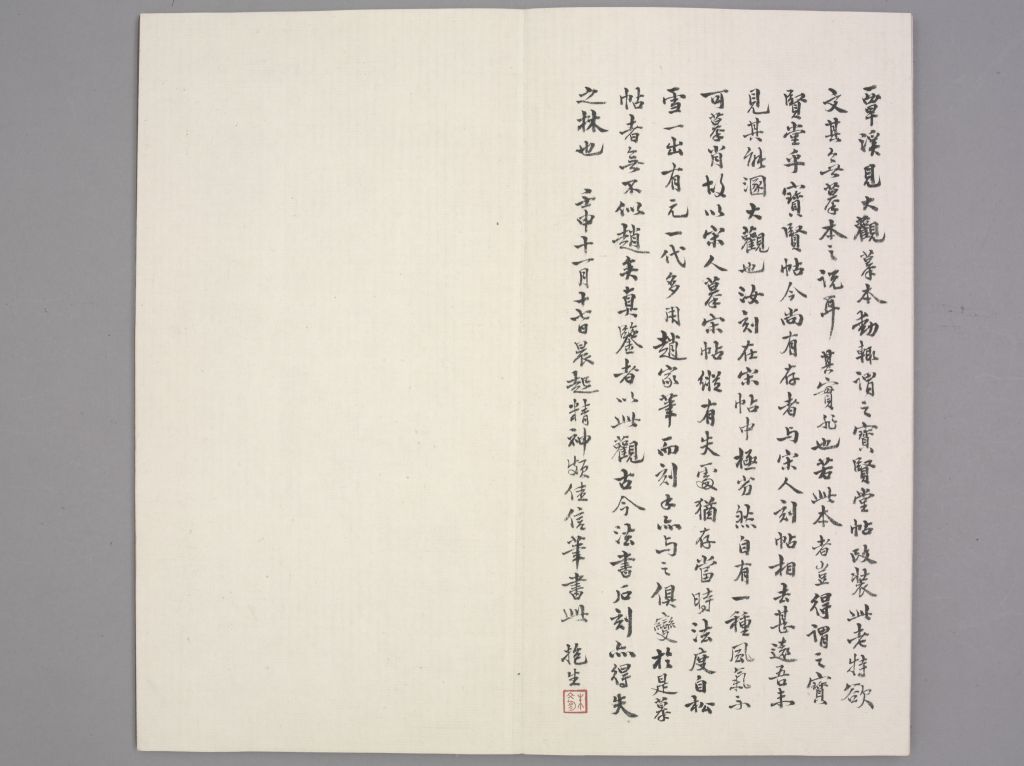 覃溪見大觀摹本動輒謂之寶賢堂帖改裝此老特欲
文其無摹本之說耳其實非也若此本者豈得謂之寶
賢堂乎寶賢帖今尚有存者与宋人刻帖相去甚遠吾未
見其能溷大觀也汝刻在宋帖中極劣然自有一種風氣不
可摹肖故以宋人摹宋帖縱有失處猶存當時法度自松
雪一出有元一代多用趙家筆而刻手亦与之俱變於是摹
帖者無不似趙矣真鑒者以此觀古今法書石刻亦得失
之林也
壬申十一月十七日晨起精神頗佳信筆書此 抱生